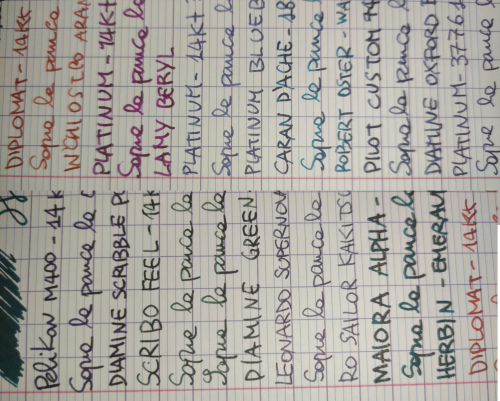 Pelikan M400 - 14K
Sopra la panca la c
DIAMINE SCRIBBLE P
SCRIBO FEEL - 14K
Sopra la panca la
Sopra la panca la
DIAMINE GREEN
LEONARDO SUPERNOVA
Sopra la panca la
RO SAILOR KAKITSU
MAIORA ALPHA -
Sopra la panca la
HERBIN - EMERAU
DIPLOMAT - 14Kt
DIPLOMAT - 14Kt
Sopra la panca la
INCHIOSTRO ARAN
PLATINUM - 14Kt
Sopra la panca la
LAMY BERYL
PLATINUM - 14Kt
Sopra la panca la
PLATINUM BLUEB
CARAN D'ACHE - 18
Sopra la panca la
ROBERT OSTER - WA
PILOT CUSTOM 74
Sopra la panca la
DIAMINE OXFORD B
PLATINUM - 3776
Sopra la panca la